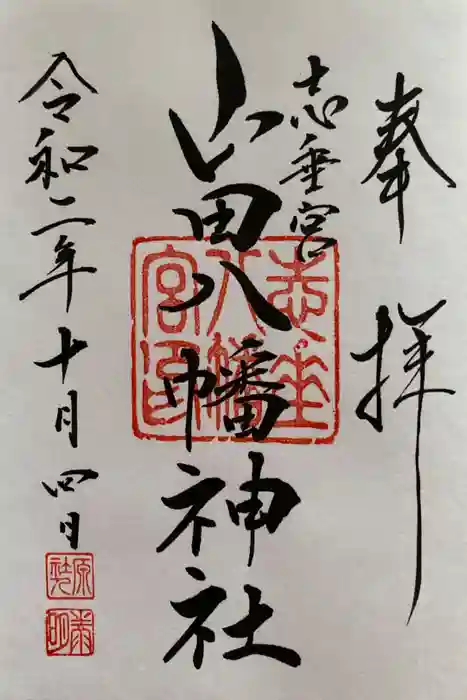 奉拝
志垂宮
山田八幡神社
志垂八幡宮印
令和二年十月四日